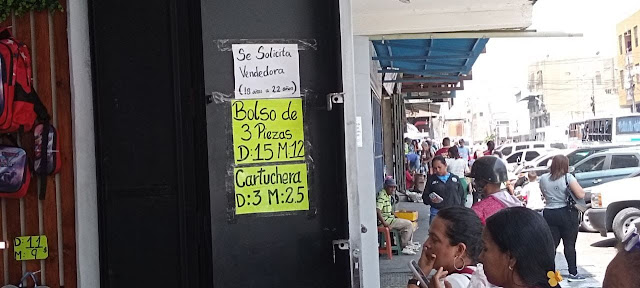 Se Solicita
Vendedora
(18 años a 22 años)
Bolso de
3 Piezas
D:15 M:12
Cartuchera
D:3 M:2.5
D:11
M:9 $